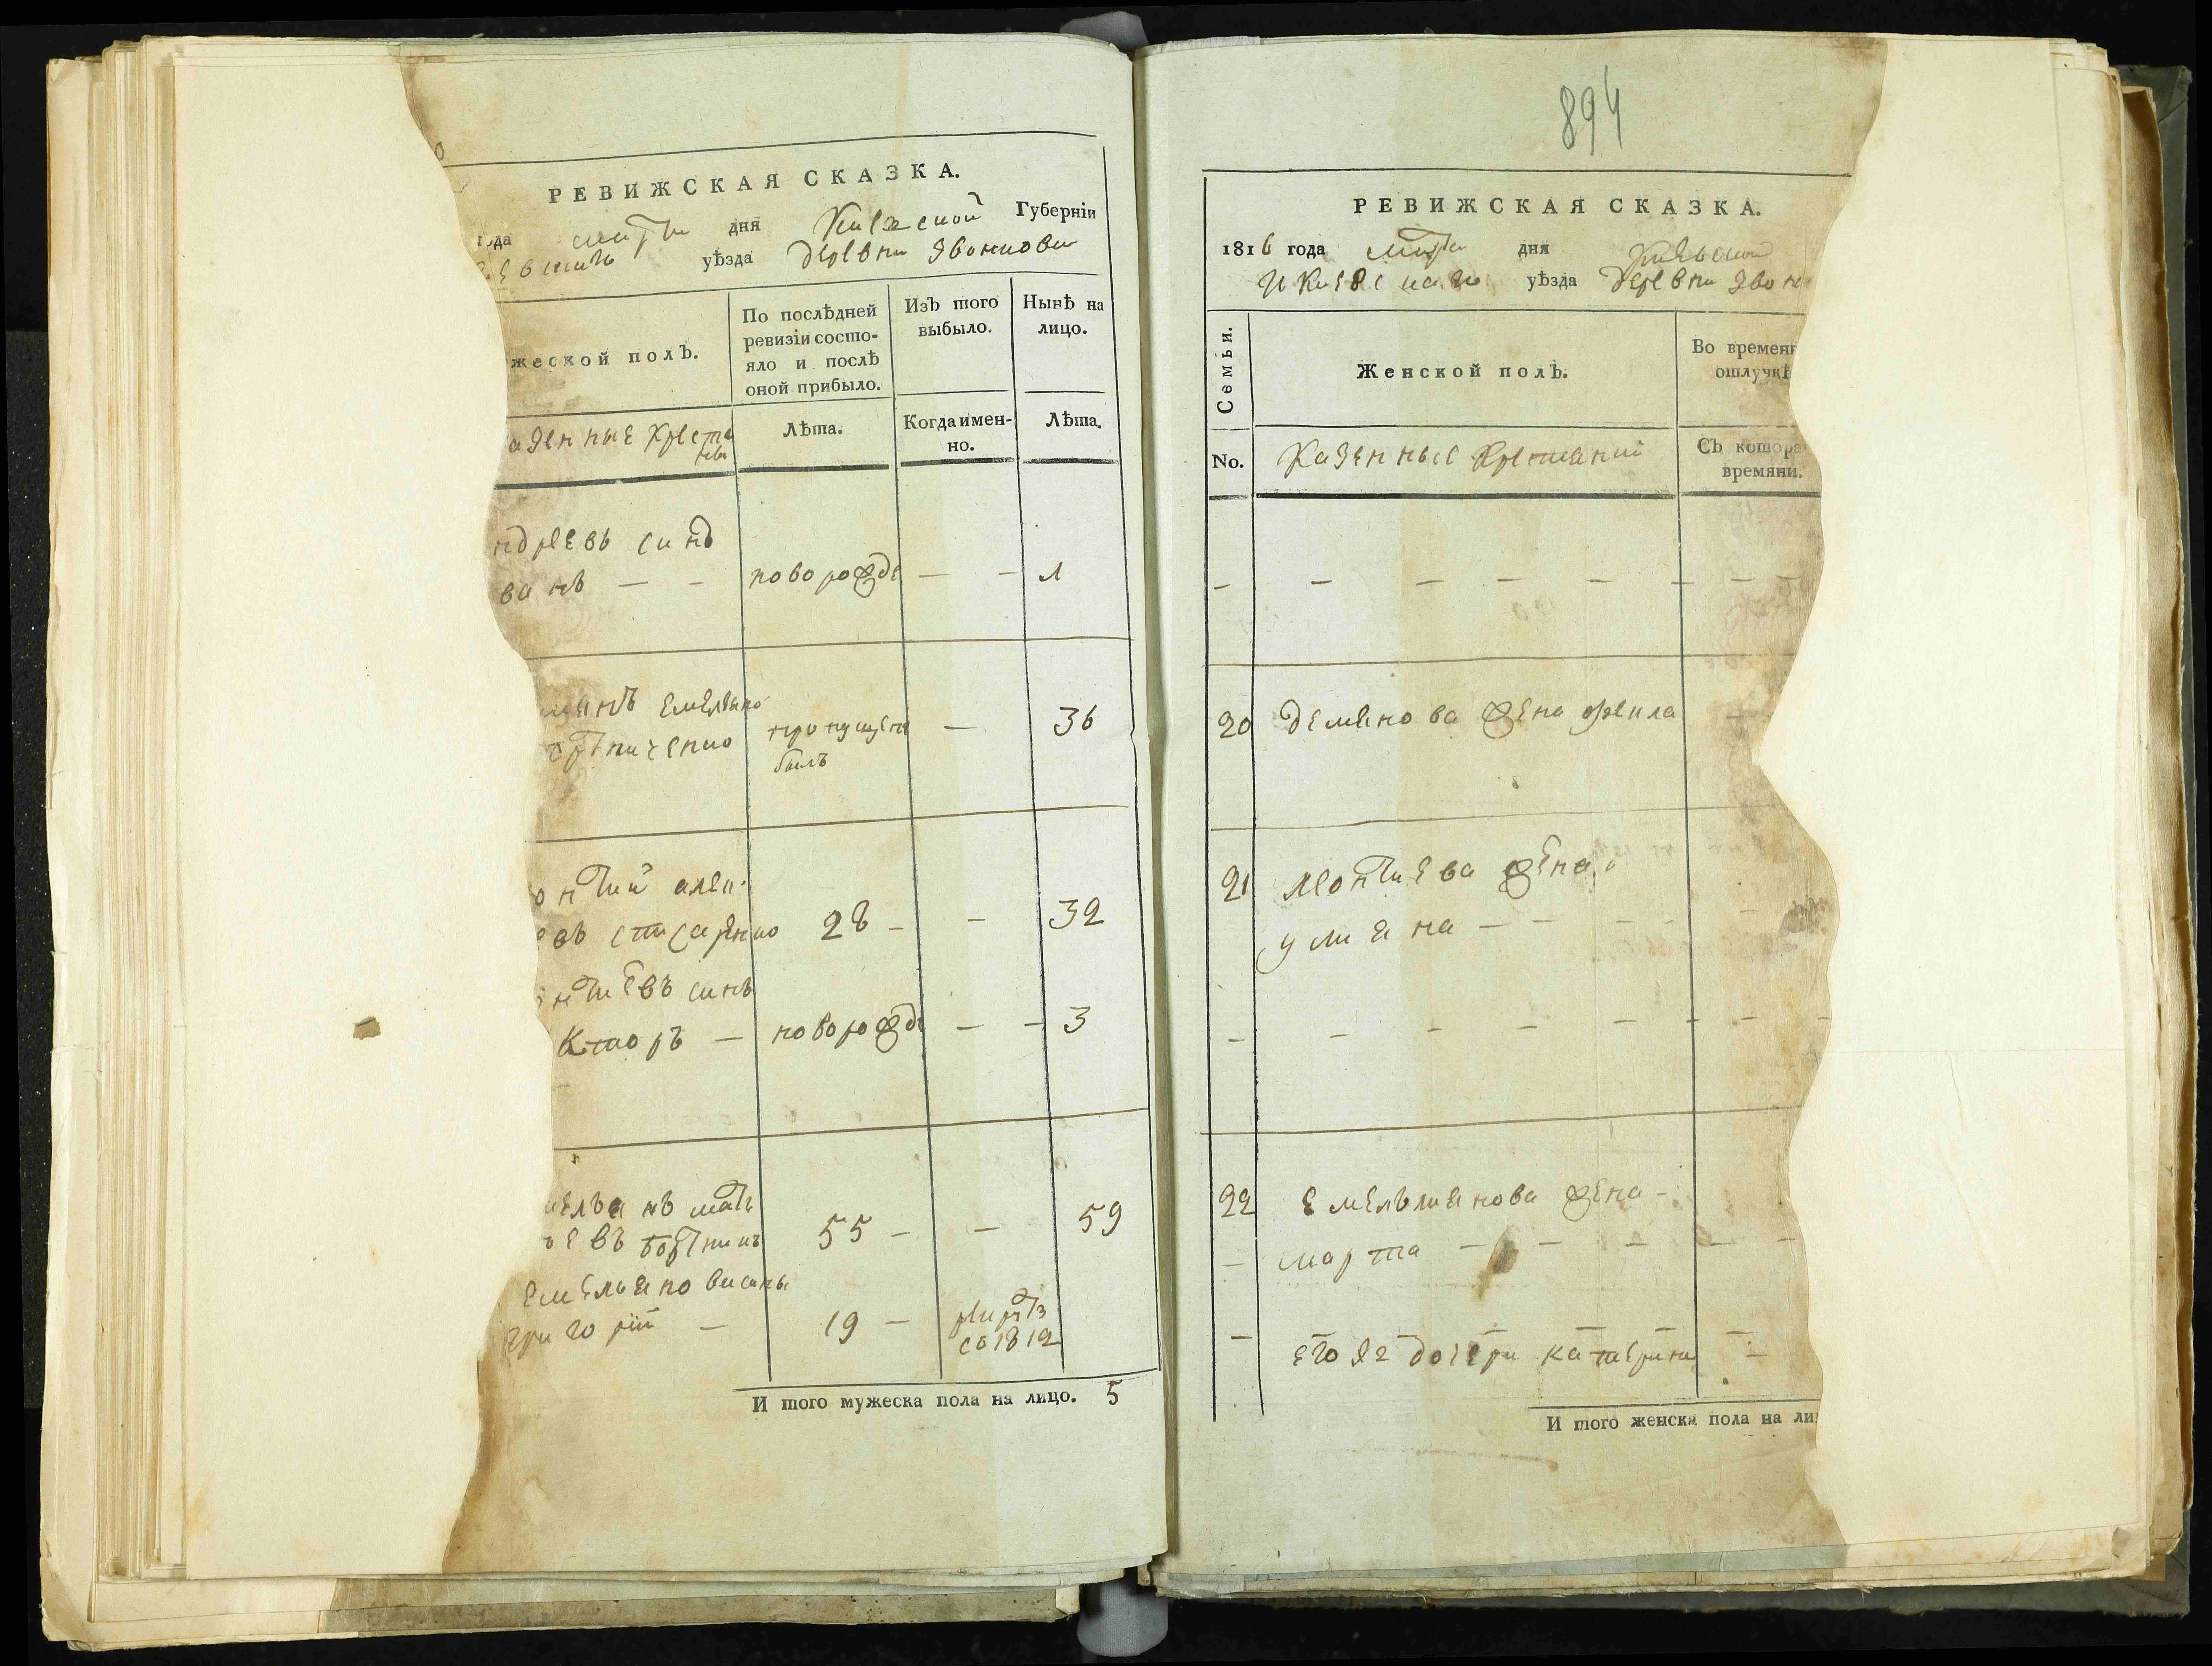 РЕВИЖСКАЯ СКАЗКА.
года марта дня Киевской Губернiи
уѣзда деревни Звонкова
жеской полъ.
По послѣдней
ревизiи состо-
яло и послѣ
оной прибыло.
Изъ того
выбыло.
Нынѣ на
лицо.
азенные крестя
Лѣта.
Когда имен-
но.
Лѣта.
ндреевъ синъ
ванъ — — новорожде — — 1
Емеляно
пропущенъ — 36
былъ
онтий алек
28 — — 32
нтиевъ синъ
кторъ — новорожде — — 3
мельянъ матв
евъ бортникъ 55 — — 59
Емельяновы сины
григорiй — 19 —
1812
И того мужеска пола на лицо. 5
894
РЕВИЖСКАЯ СКАЗКА.
1816 года марта дня Киевской
уѣзда деревни Звонк
Семьи.
Женской полъ.
Во времен
отлучкѣ
No.
Казенные крестяни
Съ котора
времяни.
— — — — — — — —
20 Демянова жена
21 Леонтиева жена
улияна — — — — —
— — — — — — — —
22 Емельянова жена —
— марта — — — — —
— его я2 дочери катерина —
И того женска пола на ли